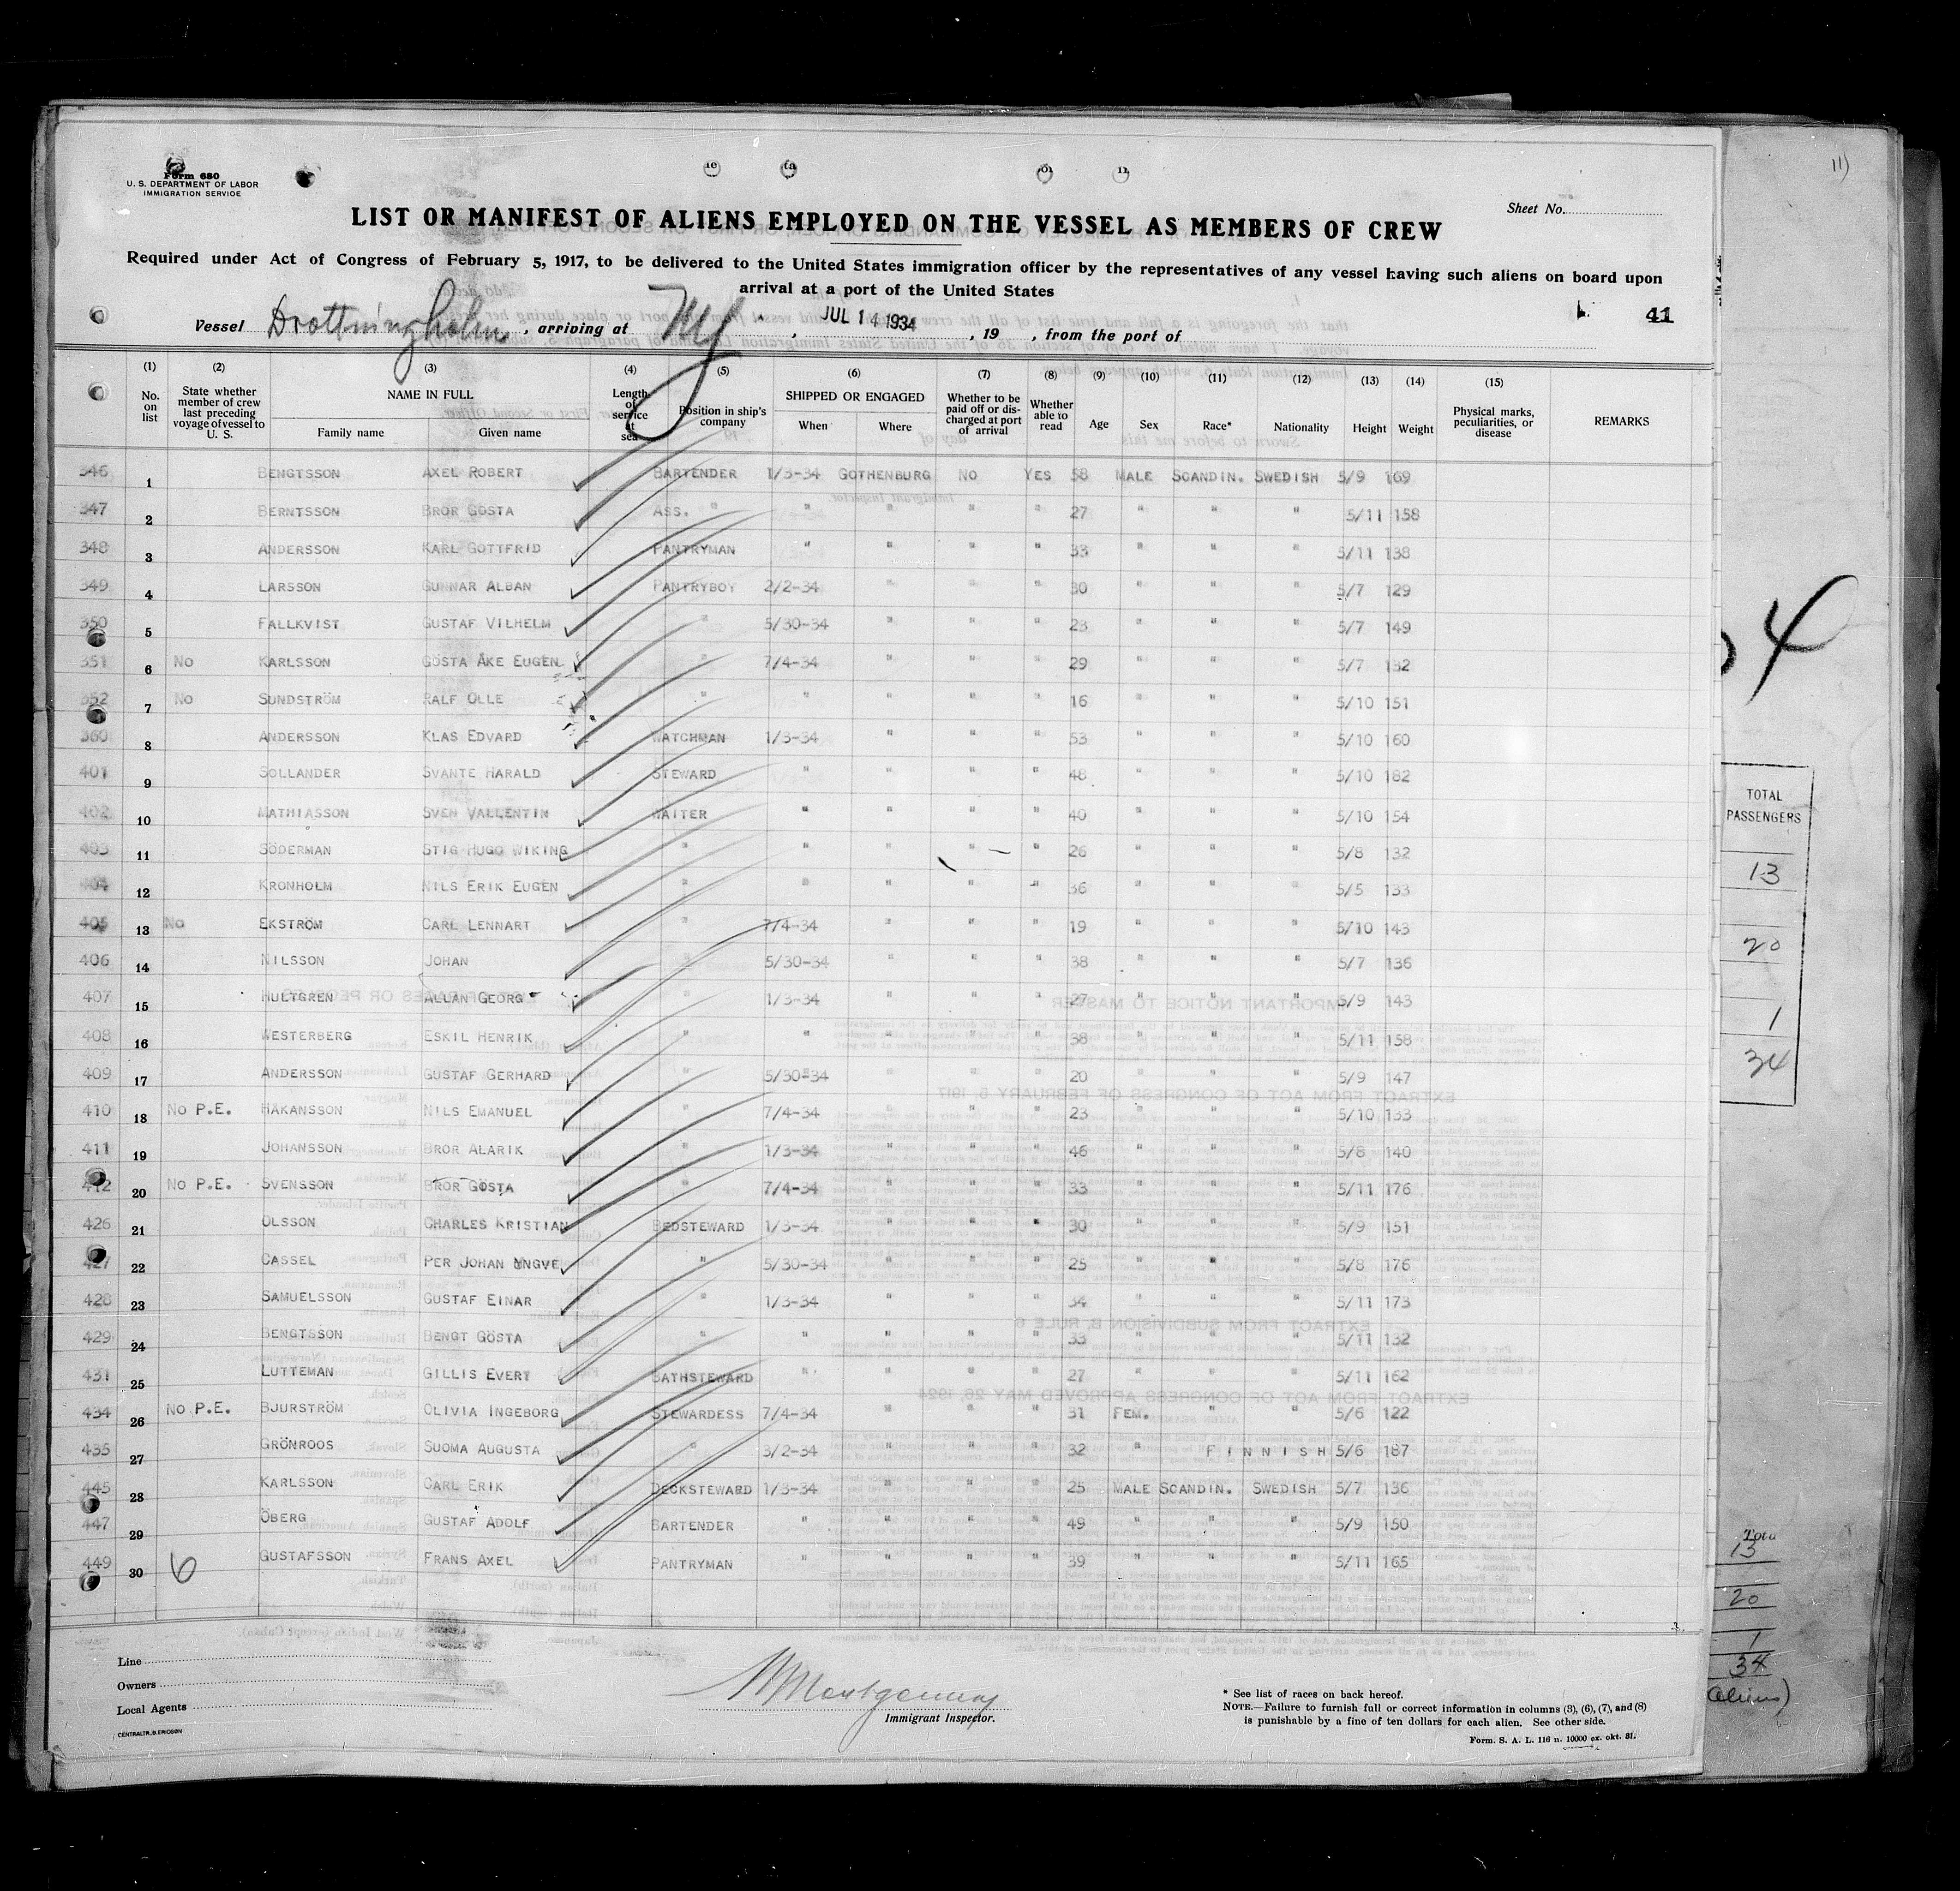 Form 680
U. S. DEPARTMENT OF LABOR
IMMIGRATION SERVICE
Sheet No.
LIST OR MANIFEST OF ALIENS EMPLOYED ON THE VESSEL AS MEMBERS OF CREW
Required under Act of Congress of February 5, 1917, to be delivered to the United States immigration officer by the representatives of any vessel having such aliens on board upon
arrival at a port of the United States
Vessel Drottningholm, arriving at NY, JUL 14 1934, 19 , from the port of 41
(1) No. on list
(2) State whether member of crew last preceding voyage of vessel to U. S.
(3) NAME IN FULL Family name Given name
(4) Length of service at sea
(5) Position in ship's company
(6) SHIPPED OR ENGAGED When Where
(7) Whether to be paid off or discharged at port of arrival
(8) Whether able to read
(9) Age
(10) Sex
(11) Race*
(12) Nationality
(13) Height
(14) Weight
(15) Physical marks, peculiarities, or disease
REMARKS
346 1 BENGTSSON AXEL ROBERT BARTENDER 1/3-34 GOTHENBURG NO YES 58 MALE SCANDIN. SWEDISH 5/9 169
347 2 BERNTSSON BROR GÖSTA ASS. " " " " " 27 " " " 5/11 158
348 3 ANDERSSON KARL GOTTFRID PANTRYMAN " " " " 33 " " " 5/11 138
349 4 LARSSON GUNNAR ALBAN PANTRYBOY 2/2-34 " " " 30 " " " 5/7 129
350 5 FALLKVIST GUSTAF VILHELM " 5/30-34 " " " 23 " " " 5/7 149
351 6 NO KARLSSON GÖSTA ÅKE EUGEN " 7/4-34 " " " 29 " " " 5/7 132
352 7 NO SUNDSTRÖM RALF OLLE " " " " " 16 " " " 5/10 151
360 8 ANDERSSON KLAS EDVARD WATCHMAN 1/3-34 " " " 53 " " " 5/10 160
401 9 SOLLANDER SVANTE HARALD STEWARD " " " " 48 " " " 5/10 182
402 10 MATHIASSON SVEN VALLENTIN WAITER " " " " 40 " " " 5/10 154
403 11 SÖDERMAN STIG HUGO WIKING " " " " " 26 " " " 5/8 132
404 12 KRONHOLM NILS ERIK EUGEN " " " " " 36 " " " 5/5 133
405 13 NO EKSTRÖM CARL LENNART " 7/4-34 " " " 19 " " " 5/10 143
406 14 NILSSON JOHAN " 5/30-34 " " " 38 " " " 5/7 136
407 15 HULTGREN ALLAN GEORG " 1/3-34 " " " 27 " " " 5/9 143
408 16 WESTERBERG ESKIL HENRIK " " " " " 38 " " " 5/11 158
409 17 ANDERSSON GUSTAF GERHARD " 5/30-34 " " " 20 " " " 5/9 147
410 18 NO P.E. HÅKANSSON NILS EMANUEL " 7/4-34 " " " 23 " " " 5/10 133
411 19 JOHANSSON BROR ALARIK " 1/3-34 " " " 46 " " " 5/8 140
412 20 NO P.E. SVENSSON BROR GÖSTA " 7/4-34 " " " 33 " " " 5/11 176
426 21 OLSSON CHARLES KRISTIAN BEDSTEWARD 1/3-34 " " " 30 " " " 5/9 151
427 22 CASSEL PER JOHAN YNGVE " 5/30-34 " " " 25 " " " 5/8 176
428 23 SAMUELSSON GUSTAF EINAR " 1/3-34 " " " 34 " " " 5/11 173
429 24 BENGTSSON BENGT GÖSTA " " " " " 33 " " " 5/11 132
431 25 LUTTEMAN GILLIS EVERT BATHSTEWARD " " " " 27 " " " 5/11 162
434 26 NO P.E. BJURSTRÖM OLIVIA INGEBORG STEWARDESS 7/4-34 " " " 31 FEM. " " 5/6 122
435 27 GRÖNROOS SUOMA AUGUSTA " 3/2-34 " " " 32 " FINNISH 5/6 187
445 28 KARLSSON CARL ERIK DECKSTEWARD 1/3-34 " " " 25 MALE SCANDIN. SWEDISH 5/7 136
447 29 ÖBERG GUSTAF ADOLF BARTENDER " " " " 49 " " " 5/9 150
449 30 6 GUSTAFSSON FRANS AXEL PANTRYMAN " " " " 39 " " " 5/11 165
Line
Owners
Local Agents
CENTRALTR., G. ERICSON
Montgomery
Immigrant Inspector.
* See list of races on back hereof.
NOTE.—Failure to furnish full or correct information in columns (3), (6), (7), and (8)
is punishable by a fine of ten dollars for each alien. See other side.
Form. S. A. L. 116 n. 10000 ex. okt. 31.
11)
4
TOTAL
PASSENGERS
13
20
1
34
Tota
13
20
1
34
(aliens)